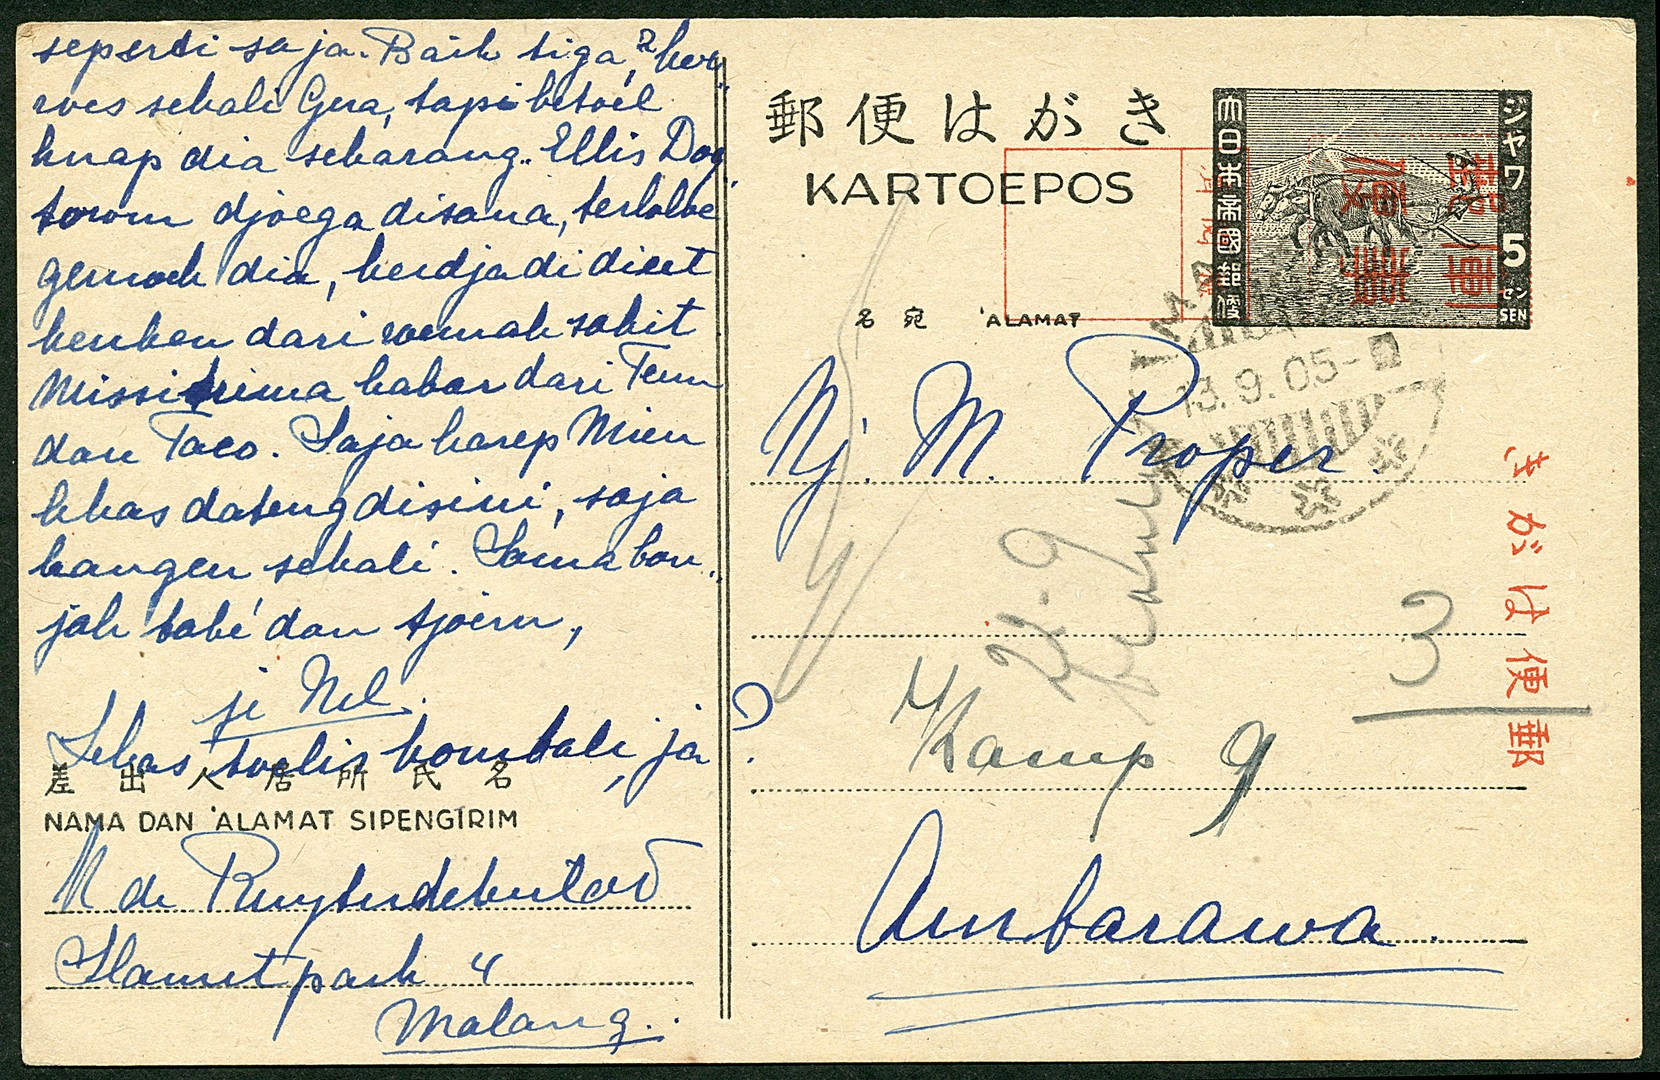 seperti saja. Baik tiga,
roes sekali Gera, tapi betoel
knap dia sekarang. Ellis Dog
torom djoega disana, terlaloe
gemoek dia, kerdja di dieet
keuken dari roemah sakit.
Missi trima kabar dari Teun
dan Taco. Saja harep Mien
lekas dateng disini, saja
kangen sekali. Sama ban-
jak tabé dan tjoem,
si Nel.
Lekas toelis kombali, ja
差出人居所氏名
NAMA DAN 'ALAMAT SIPENGIRIM
N de
4
Malang.
郵便はがき
KARTOEPOS
名宛 'ALAMAT
大日本帝國郵便
ジャワ
5
セン
SEN
13.9.05
Nj. M. Proper
3
Kamp 9
Ambarawa.
きがは便郵